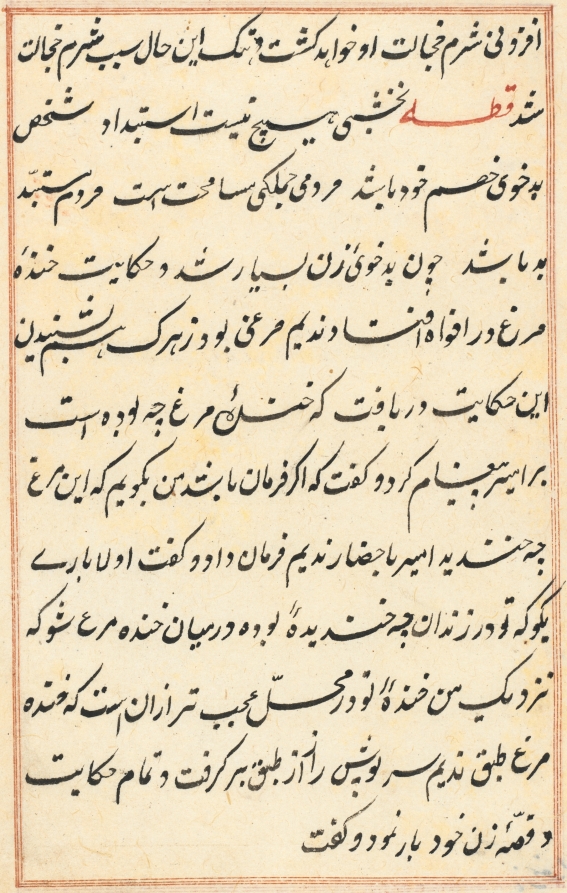 افزونی شرم خجالت او خواهد کشت و نیک این حال سبب شرم خجالت
شد قطعه نخشبی هیچ نیست استبداد شخص
بدخوی خصم خود باشد مردمی جملگی مسامحت است مردم مستبدّ
بد باشد چون بدخوئ زن بسیار شد و حکایت خندهٔ
مرغ در افواه افتاد ندیم مرغی بود زیرک بشنیدن
این حکایت دریافت که خندهٔ مرغ چه بوده است
بر امیر پیغام کرد و گفت که اگر فرمان باشد من بگویم که این مرغ
چه خندید امیر باحضار ندیم فرمان داد و گفت اولا بارے
بگو که تو در زندان چه خندیدهٔ بوده در میان خنده مرغ شو که
نزدیک من خندهٔ تو در محلّ عجیب تر ازان است که خنده
مرغ طبق ندیم سرپوش راز از طبق بر گرفت و تمام حکایت
و قصّهٔ زن خود باز نمود و گفت